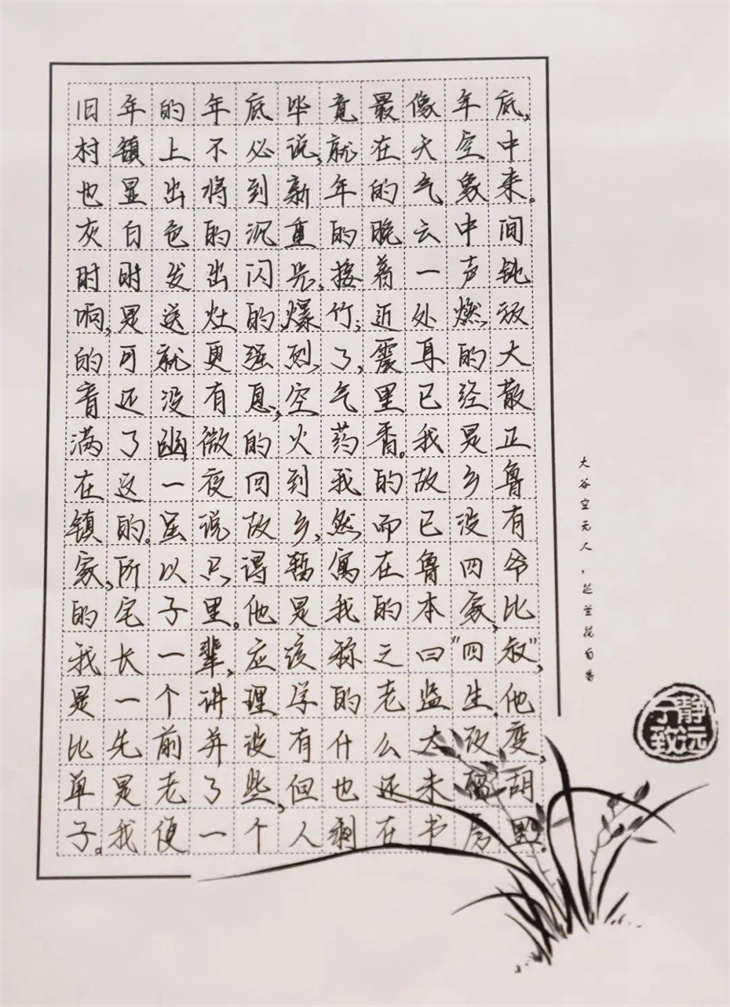 旧年的年底毕竟最像年底,
村镇上不必说,就在天空中
也显出将到新年的气象来。
灰白色的沉重的晚云中间
时时发出闪光,接着一声钝
响,是送灶的爆竹;近处燃放
的可就更强烈了,震耳的大
音还没有息,空气里已经散
满了幽微的火药香。我是正
在这一夜回到我的故乡鲁
镇的。虽说故乡,然而已没有
家,所以只得暂寓在鲁四爷
的宅子里。他是我的本家,比
我长一辈,应该称之曰"四叔",
是一个讲理学的老监生。他
比先前并没有什么大改变,
单是老了些,但也还未留胡
子。我便一个人剩在书房里。
大谷空无人,芝兰花自香
宁静致远